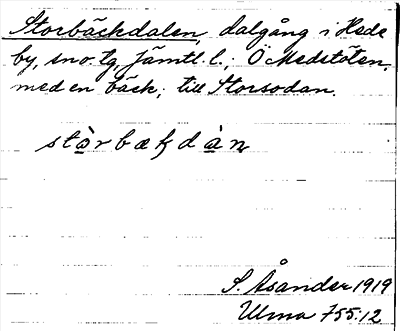 Storbäckdalen, dalgång i Hede
by, sn o. tg, Jämtl. l.; Ö Medstöten,
med en bäck; till Storsodan.
stòrbækdàn
S. Åsander 1919
Ulma 755:12